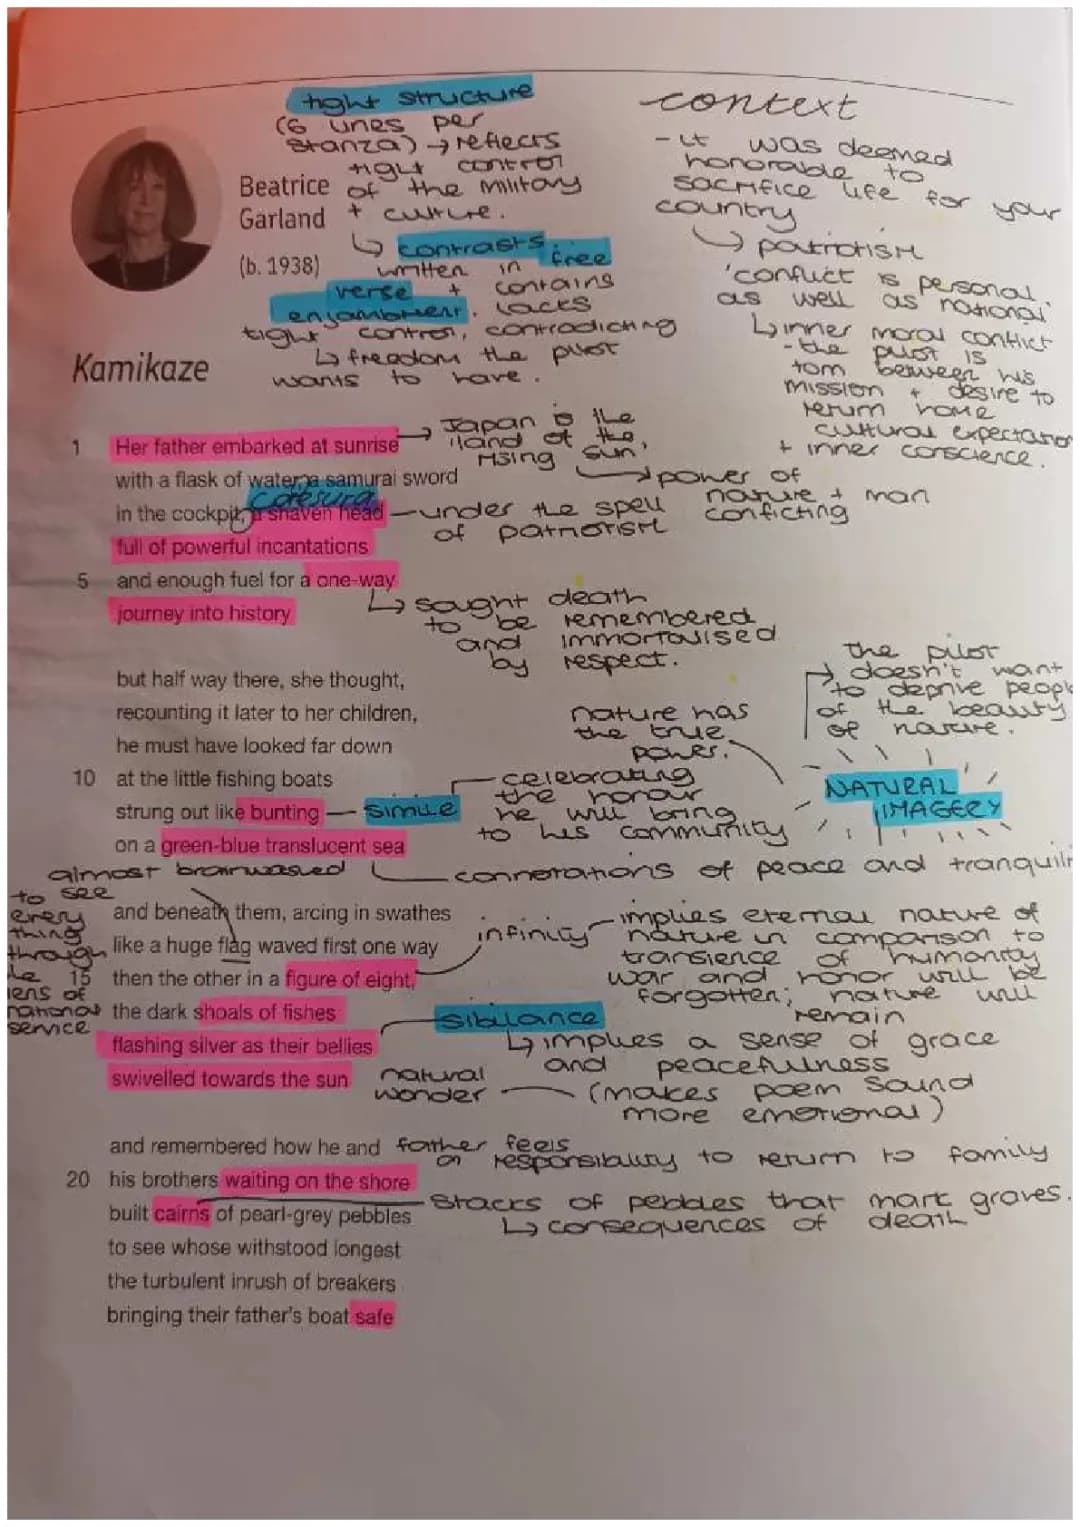 tight structure
(6 lines per
stanza) → reflects
tight control
of the military
+ culture.
↳ contrasts,
written in free
verse + contains
enjambment. lacks
tight control, contradicting
↳ freedom the pilot
wants to have.
context
- it was deemed
honorable to
sacrifice life for your
country
↳ patriotism
'conflict is personal
as well as national'
↳ inner moral conflict
- the pilot is
torn between his
mission + desire to
return home
cultural expectation
+ inner conscience.
Beatrice
Garland
(b. 1938)
Kamikaze
1 Her father embarked at sunrise
→ Japan is the
'land of the
rising sun'
↳ power of
nature + man
conflicting
with a flask of water, a samurai sword
caesura
in the cockpit, a shaven head
- under the spell
of patriotism
full of powerful incantations
5 and enough fuel for a one-way
journey into history
↳ sought death
to be remembered
and immortalised
by respect.
but half way there, she thought,
recounting it later to her children,
he must have looked far down
10 at the little fishing boats
strung out like bunting
on a green-blue translucent sea
simile
celebrating
the honour
he will bring
to his community
nature has
the true
power.
the pilot
doesn't want
to deprive people
of the beauty
of nature.
NATURAL
IMAGERY
connotations of peace and tranquili
almost brainwashed
to see
every
thing
through
lens of
national
service
and beneath them, arcing in swathes
like a huge flag waved first one way
15 then the other in a figure of eight,
the dark shoals of fishes
flashing silver as their bellies
swivelled towards the sun
infinity
implies eternal nature of
nature in comparison to
transience of humanity
war and honor will be
forgotten; nature will
remain
sibilance
↳ implies a sense of grace
and peacefulness
(makes poem sound
more emotional)
natural
wonder
and remembered how he and
20 his brothers waiting on the shore
built cairns of pearl-grey pebbles
to see whose withstood longest
the turbulent inrush of breakers
bringing their father's boat safe
father feels
a responsibility to return to family
stacks of pebbles that mark graves.
↳ consequences of death